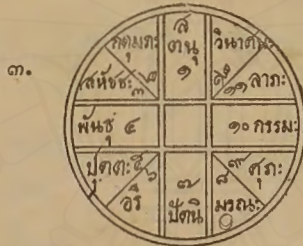 ๓.
ส
ตนุ
๑
กดุมภะ
๒
สหัชชะ
๓
พันธุ ๔
ปุตตะ ๕
อริ
๖
๗
ปัตนิ
มรณะ
๘
ศุภะ
๙
๑๐ กรรมะ
ลาภะ
๑๑
๑๒